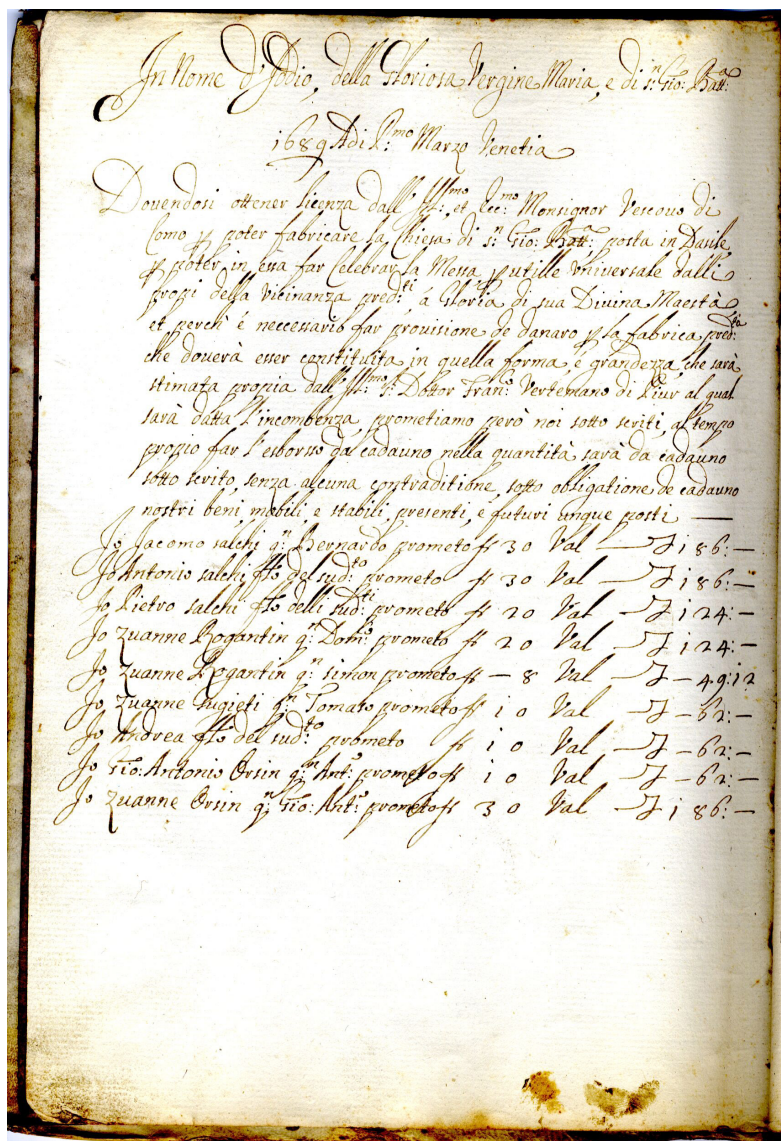 In Nome d'Iddio, della Gloriosa Vergine Maria, e di S.n Gio: Batt:a
1689 Adi P:mo Marzo Venetia
Douendosi ottener licenza dall' Ill:mo et Ecc:mo Monsignor Vescouo di
Como p poter fabricare la Chiesa di S.n Gio: Batt:a posta in Dasile,
p poter in essa far Celebrar la Messa p utille vniuersale dalli
propi della Vicinanza pred:ti á Gloria di sua Diuina Maestà
et perchi è neccessario far prouisione de danaro p la fabrica pred:ta
che douerà esser constituita in quella forma, é grandezza, che sarà
stimata propia dall' Ill:mo S:r Dottor Fran:o Vertemano di Piur al qual
sarà datta l'incombenza, prometiamo però noi sotto scriti, al tempo
propio far l'esborsso da cadauno nella quantità sarà da cadauno
sotto scrito, senza alcuna contraditione, sotto obligatione de cadauno
nostri beni mobili, e stabili, presenti, e futuri unque posti —
Jo Jacomo salchi q:m Bernardo prometo fi 30 Val — L 186:—
Jo Antonio salchi ffo del sud:to prometo fi 30 Val — L 186:—
Jo Pietro salchi ffo delli sud:ti prometo fi 20 Val — L 124:—
Jo Zuanne Rogantin q:m Dom:o prometo fi 20 Val — L 124:—
Jo Zuanne Rogantin q:m simon prometo fi — 8 Val — L — 49:12
Jo Zuanne q:m Tomaso prometo fi 10 Val — L — 62:—
Jo Andrea ffo del sud:to prometo fi 10 Val — L — 62:—
Jo Gio: Antonio Orsin q:m Ant:o prometo fi 10 Val — L — 62:—
Jo Zuanne Orsin q:m Gio: Ant:o prometo fi 30 Val — L 186:—